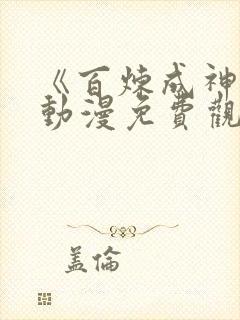 《百炼成神
動漫免費觀
盖倫